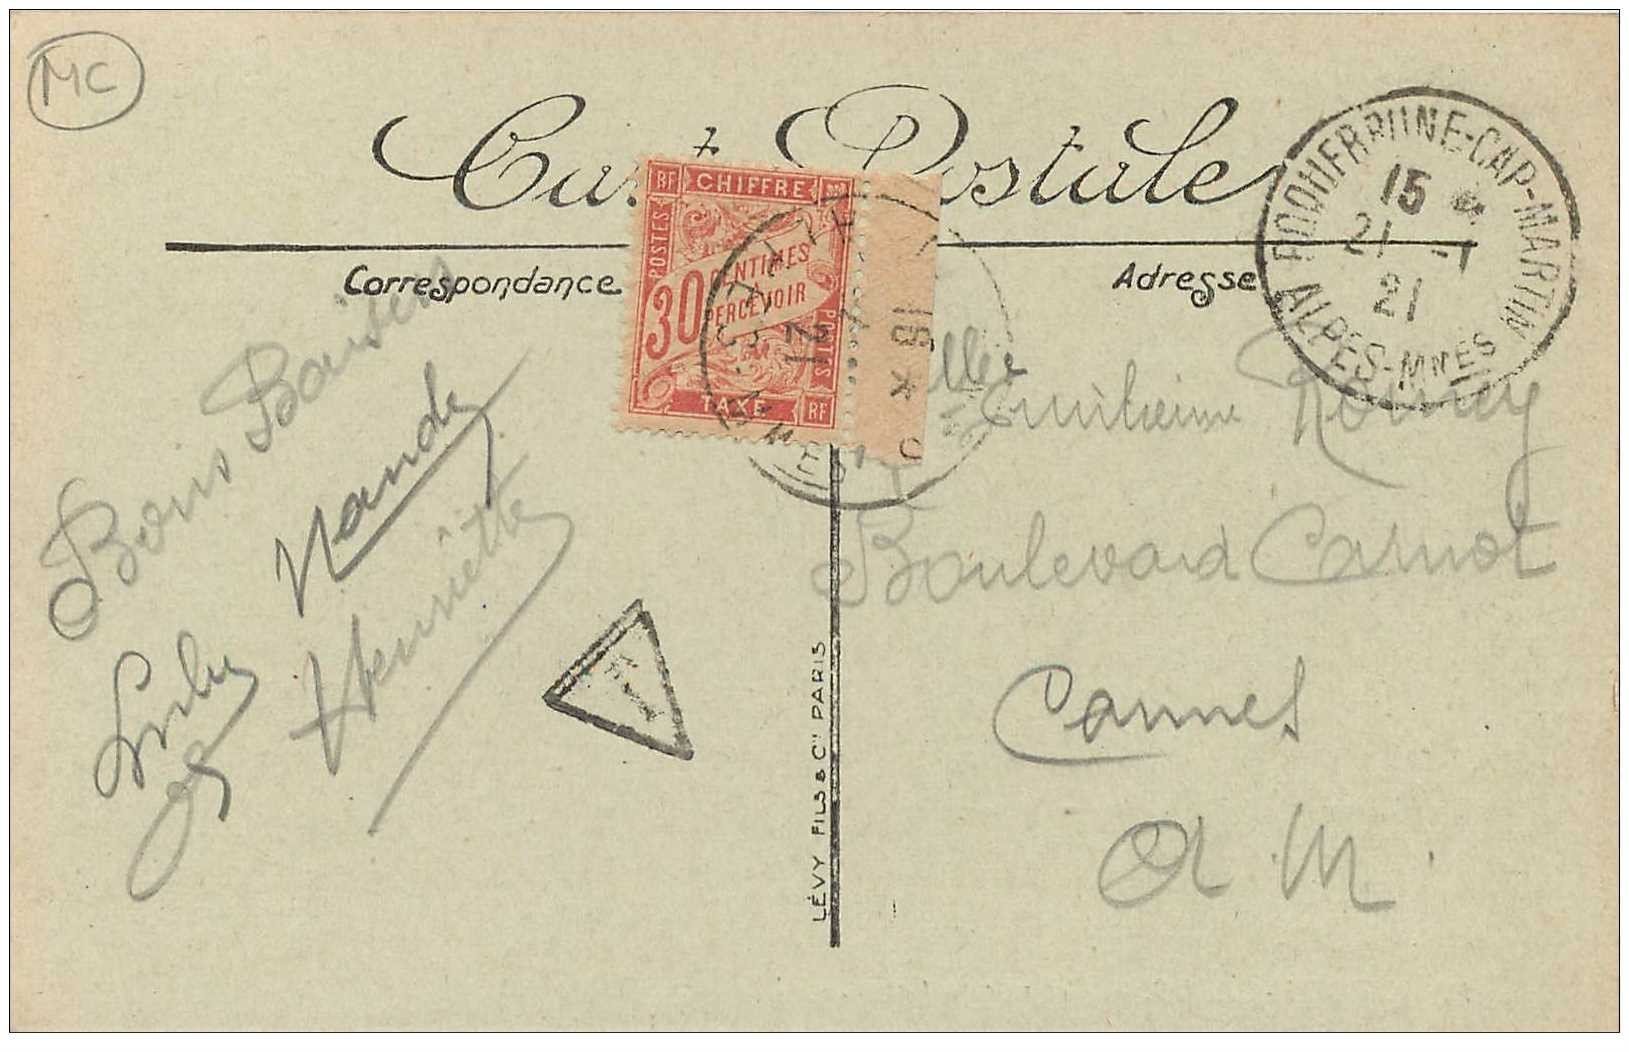 MC
Carte Postale
Correspondance
Adresse
RF CHIFFRE
POSTES
30 CENTIMES
PERCEVOIR
POSTES
TAXE RF
16 *
21
ROQUEBRUNE-CAP-MARTIN
15 *
21 -1
21
ALPES-MMES
Bons Baisers
Nande
Henriette
T
LÉVY FILS & Cie PARIS
Melle
Boulevard Carnot
Cannes
A. M.